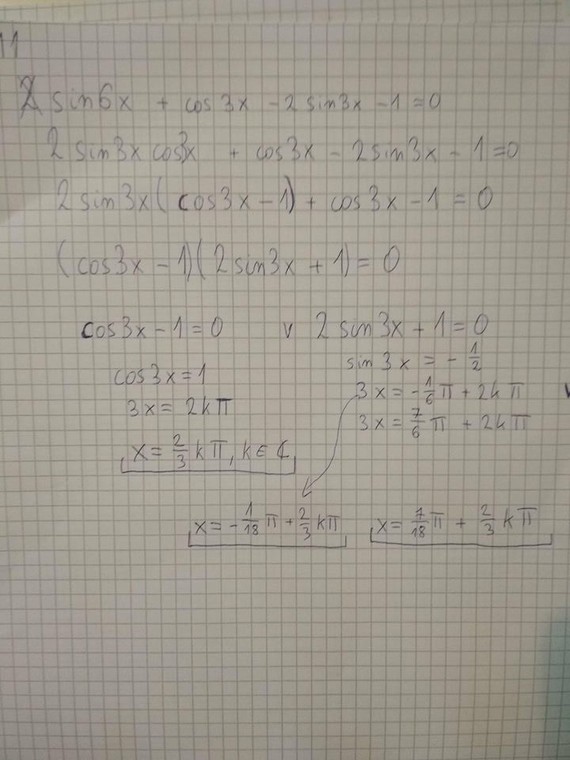 11
sin6x + cos 3x - 2 sin3x - 1 = 0
2 sin3x cos3x + cos3x - 2sin3x - 1 = 0
2sin3x(cos3x - 1) + cos3x - 1 = 0
(cos3x - 1)(2sin3x + 1) = 0
cos3x - 1 = 0 v 2 sin3x + 1 = 0
cos3x = 1
sin3x = -1/2
3x = 2kπ
3x = -1/6π + 2kπ v
3x = 7/6π + 2kπ
x = 2/3kπ, k∈ℂ
x = -1/18π + 2/3kπ
x = 7/18π + 2/3kπ